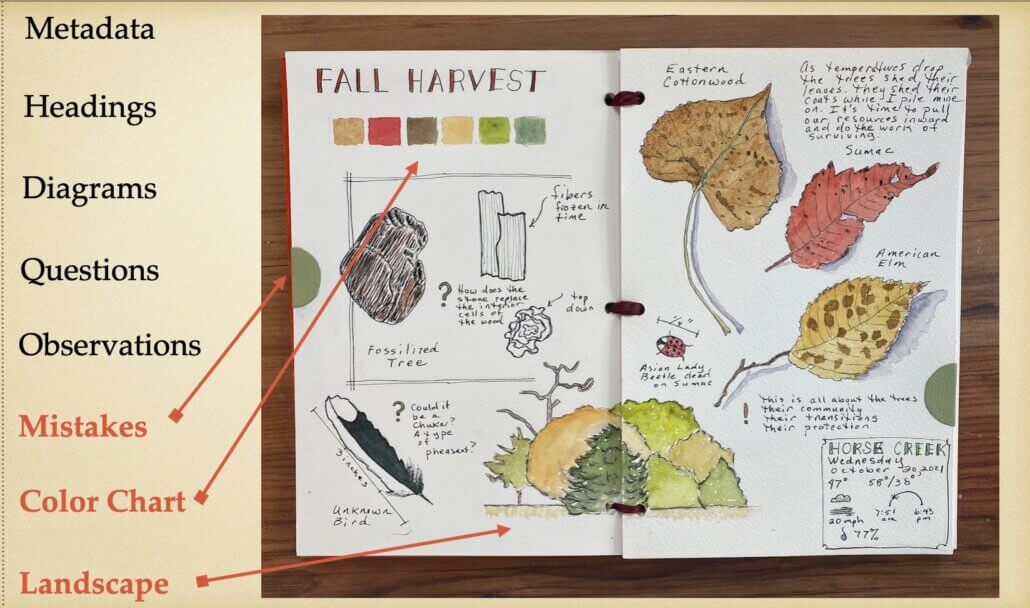 Metadata
Headings
Diagrams
Questions
Observations
Mistakes
Color Chart
Landscape
FALL HARVEST
fibers
frozen in
time
? How does the
stone replace
the interior
cells of
the wood
top
down
Fossilized
Tree
? Could it
be a
Chukar?
A type
of
pheasant?
3 inches
Unknown
Bird.
Eastern
Cottonwood
As temperatures drop
the trees shed their
leaves. They shed their
coats while I pile mine
on. It's time to pull
our resources inward
and do the work of
surviving.
Sumac
American
Elm
1/4"
Asian Lady
Beetle dead
on Sumac
! This is all about the trees
Their community
their transitions
Their protection
HORSE CREEK
Wednesday
October 20, 2021
47° 58°/38°
20 mph 7:51 am 6:43 pm
77%